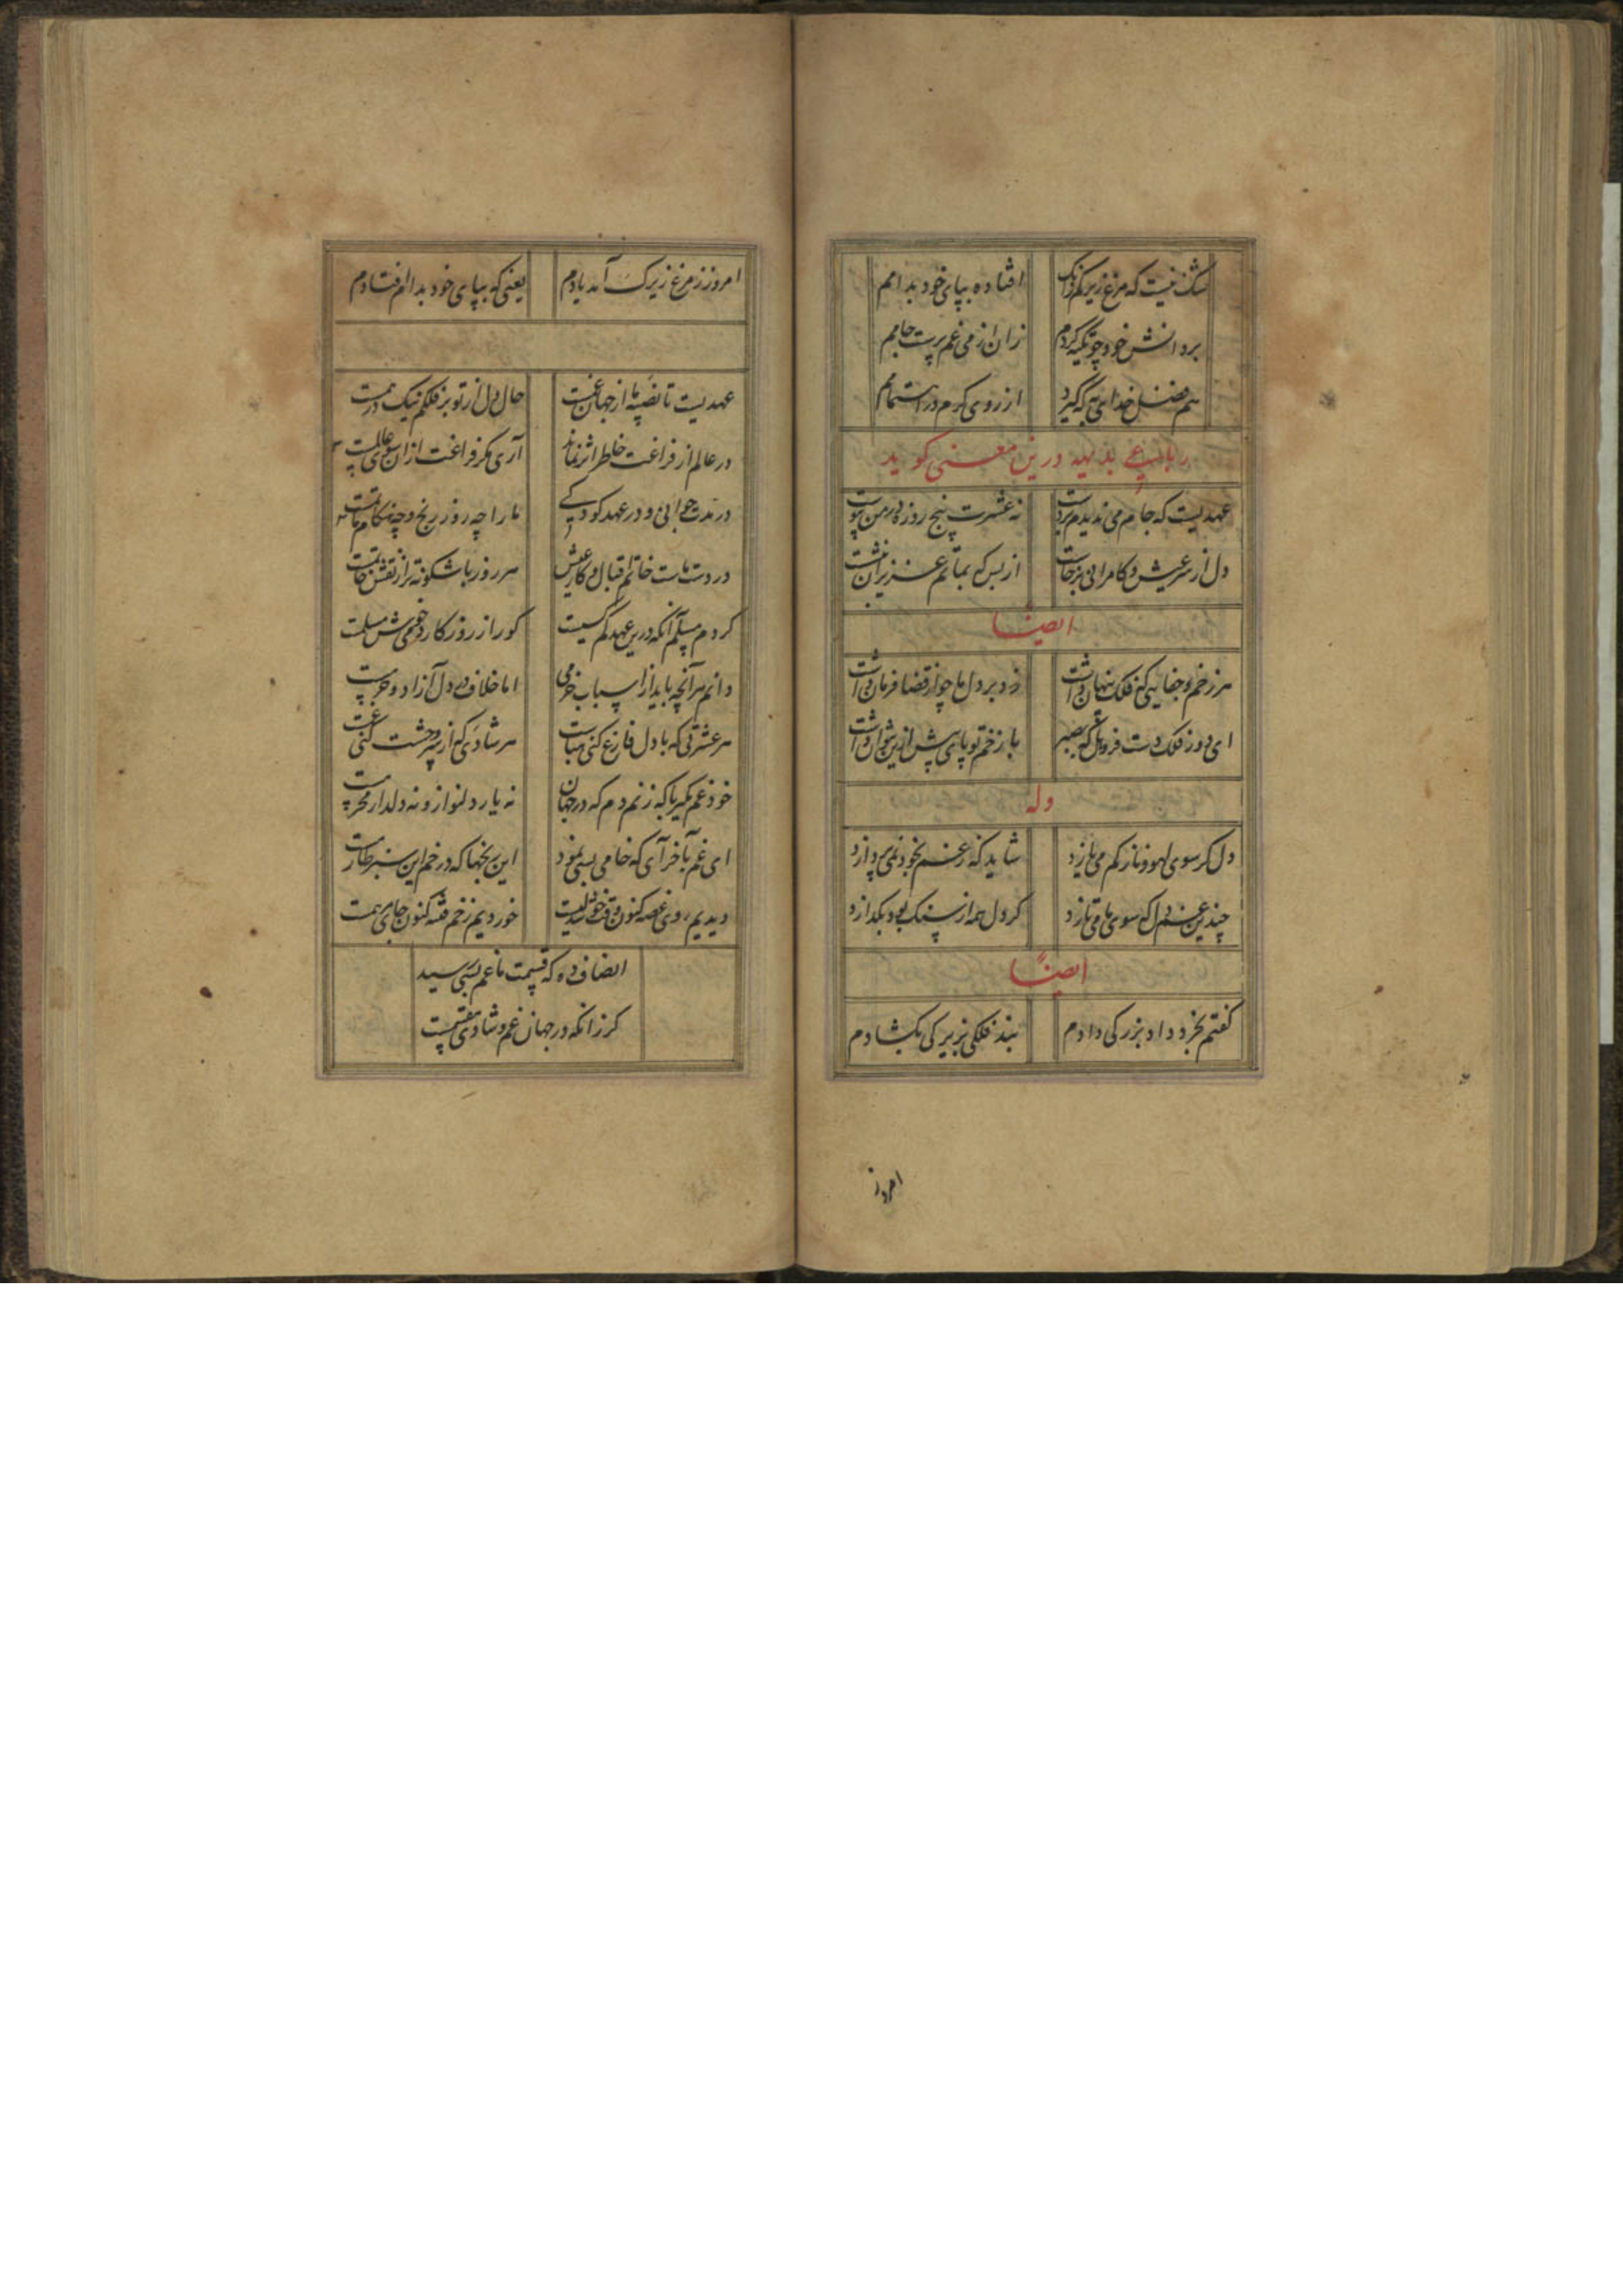 شک نیست که مرغ زیرکم زانک افتاده بپای خود بدامم
بر دانش خود چو تکیه کردم زان از می غم پرست جامم
هم فضل خدای به که گیرد از روی کرم در اهتمامم
رباعی بدیهه درین معنی گوید
عهدیست که جام می ندیدم بر دست نه عشرت پنج روزه در من پیوست
دل از سر عیش و کامرانی برخاست از بس که بماتم عزیزان بنشست
ایضا
هر زخم و جفایی که فلک پنهان داشت زد بر دل ما چو از قضا فرمان داشت
ای دور فلک دست فرو کل که بصبر با زخم تو پای پیش ازین نتوان داشت
وله
دل گر سوی لهو و ناز کم می یازد شاید که ز غم بخود نمی پردازد
چندین غم دل که سوی ما می تازد گر دل همه از سنگ بود بگدازد
ایضاً
گفتم بخرد داد بزرگی دادم بند فلکی بزیرکی بگشادم
امروز
امروز ز مرغ زیرک آمد یادم یعنی که بپای خود بدام افتادم
عهدیست تا نصیبه ما از جهان غمست حال دل از تو بر فلکم نیک درهمست
در عالم از فراغت خاطر اثر نماند آری مگر فراغت ازان سوی عالمست
در مدت جوانی و در عهد کودکی ما را چه روز رنج و چه هنگام ماتمست
در دست ماست خاتم اقبال و کار عیش هر روز باشگونه تر از نقش خاتمست
کردم مسلم آنکه درین عهد کم کسیست کو را ز روزگار دمی خوش مسلمست
دانم هر آنچه باید از اسباب خرمی اما خلاف در دل آزاد و خرمست
هر عشرتی که با دل فارغ کنی مباست هر شادی که از سر وحشت کنی غمست
خود غم مگیر با که زنم دم که در جهان نه یار دلنواز و نه دلدار محرمست
ای غم بآخر آی که خامی بسی نمود این رنجها که در خم این سبز طارمست
دیدیم روی غصه کنون وقت خوشدلیست خوردیم زخم فتنه کنون جای مرهمست
انصاف ده که قسمت ما غم بسی رسید
گر زانکه در جهان غم و شادی مقسمست